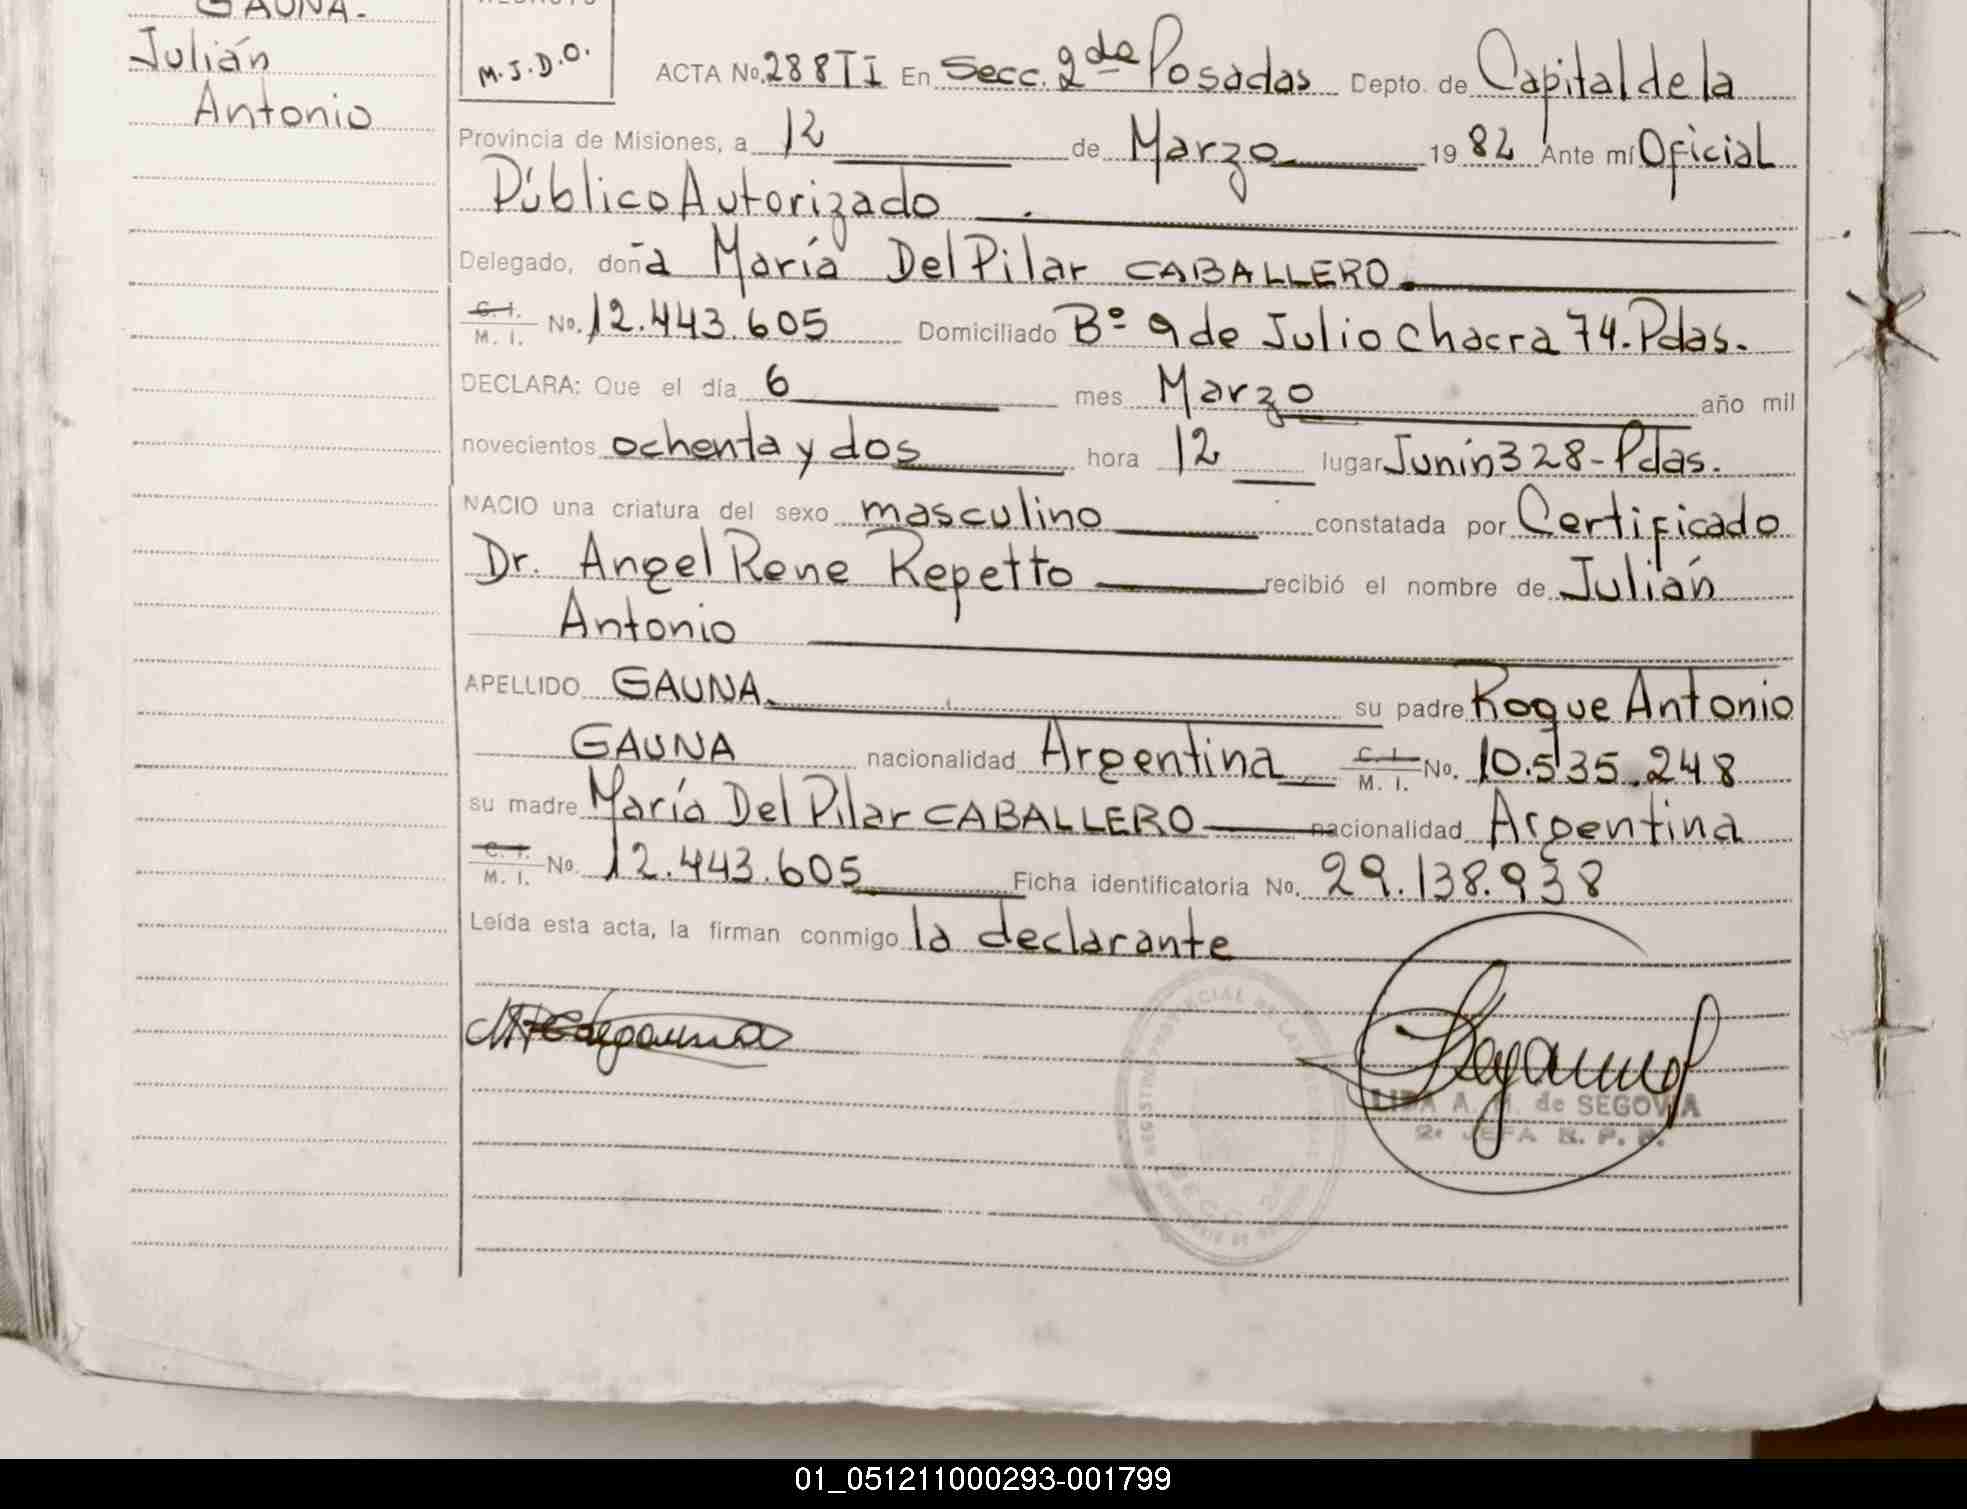 GAUNA.
Julián
Antonio
M.J.D.O.
ACTA No. 288 T I En Secc. 2da Posadas Depto. de Capital de la
Provincia de Misiones, a 12 de Marzo 1982 Ante mí Oficial
Público Autorizado
Delegado, doña María Del Pilar CABALLERO.
C. I.
M. I. No. 12.443.605 Domiciliado Bº 9 de Julio Chacra 74. Pdas.
DECLARA: Que el día 6 mes Marzo año mil
novecientos ochenta y dos hora 12 lugar Junín 328 - Pdas.
NACIO una criatura del sexo masculino constatada por Certificado
Dr. Angel Rene Repetto recibió el nombre de Julián
Antonio
APELLIDO GAUNA. su padre Roque Antonio
GAUNA nacionalidad Argentina C. I.
M. I. No. 10.535.248
su madre María Del Pilar CABALLERO nacionalidad Argentina
C. I.
M. I. No. 12.443.605 Ficha identificatoria No. 29.138.938
Leída esta acta, la firman conmigo la declarante
LIDA A. M. de SEGOVIA
2º JEFA R. P. P.
01_051211000293-001799